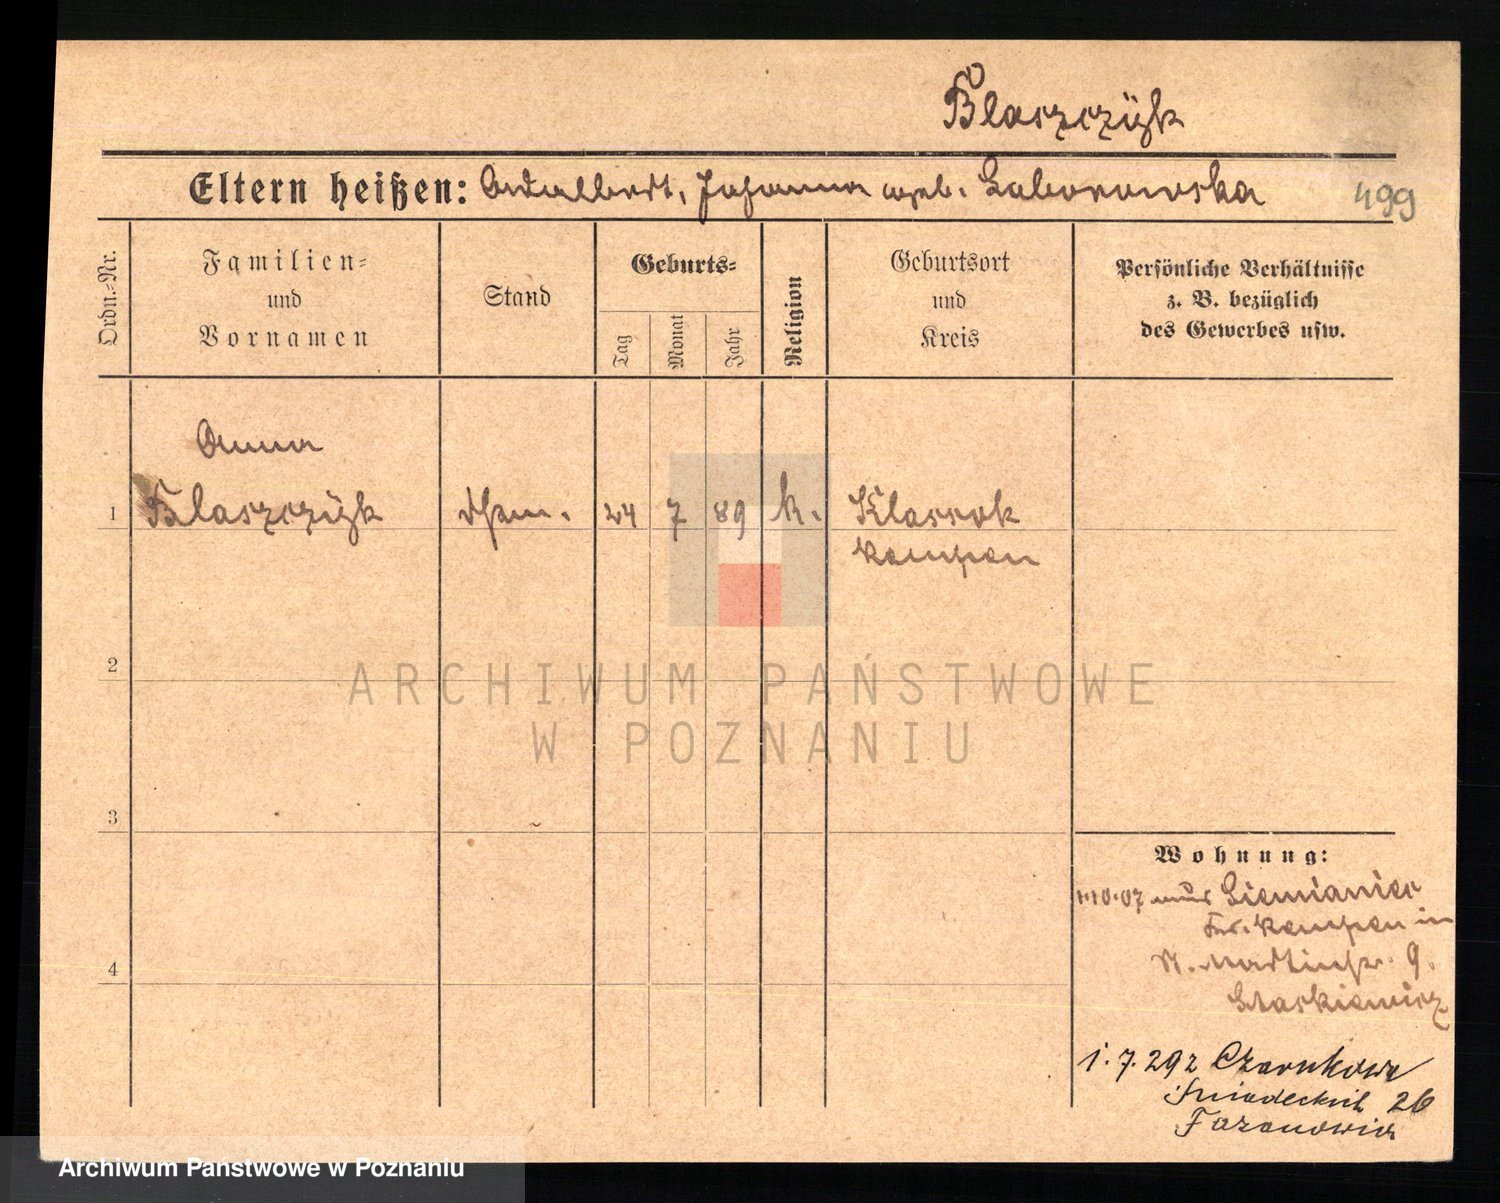 Blaszczÿk
Eltern heißen: Adalbert, Johanna geb. Laborowska
499
Ordn.-Nr.
Familien-
und
Vornamen
Stand
Geburts-
Tag
Monat
Jahr
Religion
Geburtsort
und
Kreis
Persönliche Verhältnisse
z. B. bezüglich
des Gewerbes usw.
Anna
1 Blaszczÿk 24 7 89 k. Klassok
Kempen
2
3
4
Wohnung:
1.10.07 aus Siemianice
Kr. Kempen in
St. Martinstr. 9.
Staskiewicz
1.7.29 z Czarnkowa
Śniadeckich 26
Fazanowicz
ARCHIWUM PAŃSTWOWE
W POZNANIU
Archiwum Państwowe w Poznaniu